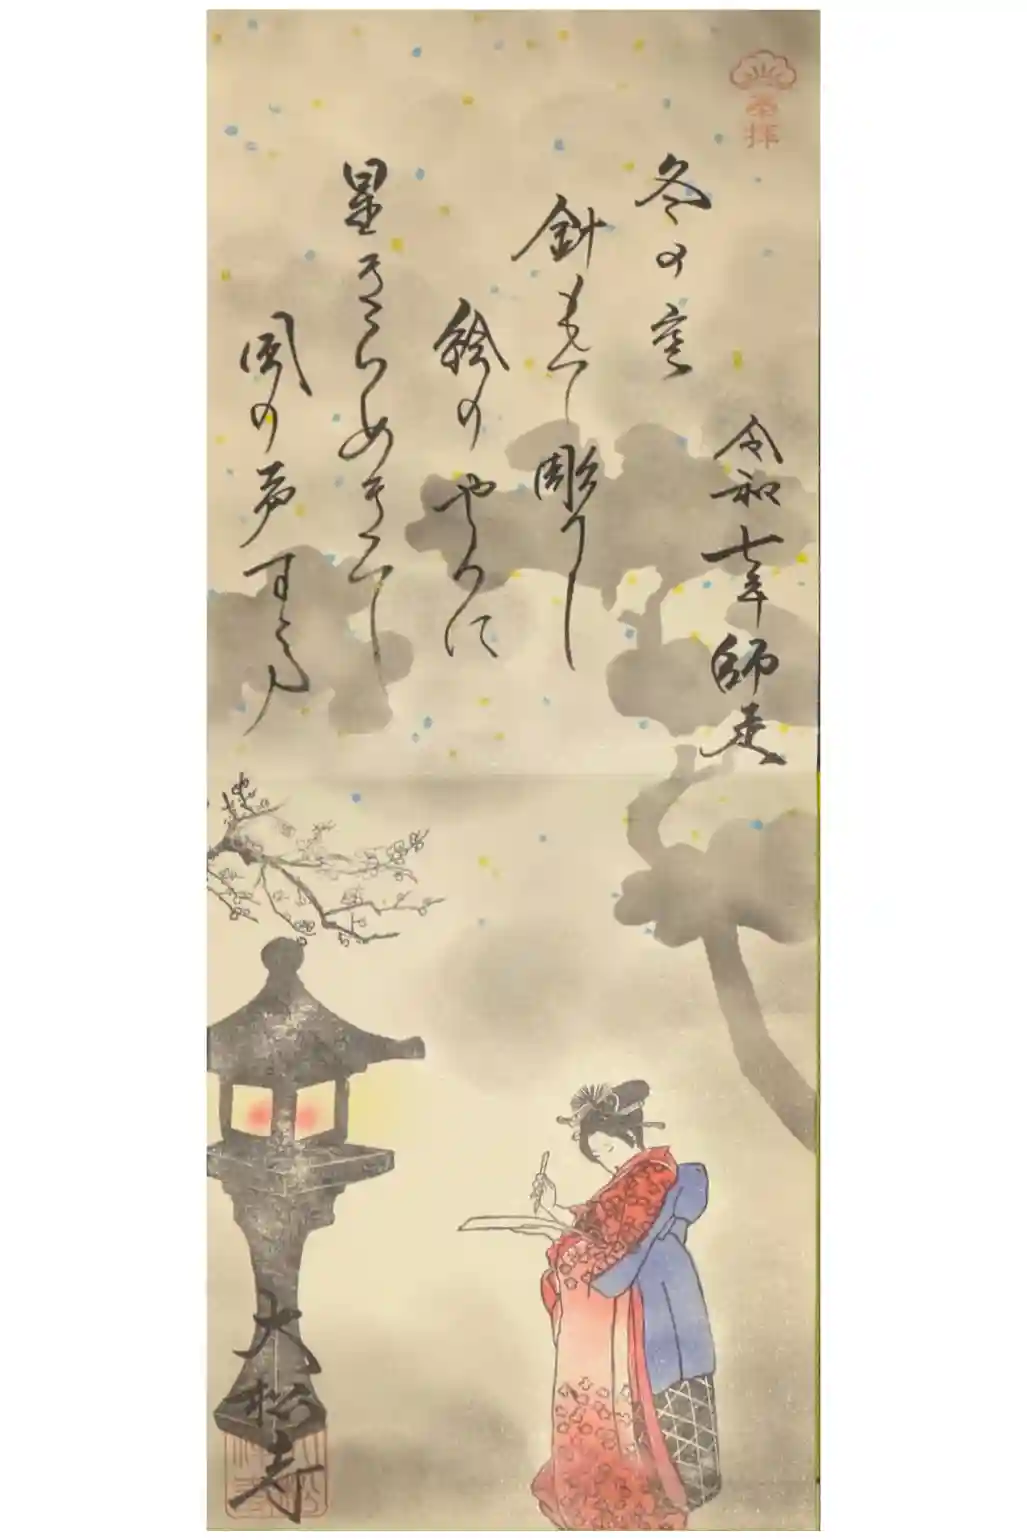 奉拝
令和七年師走
冬の空
針もて彫りし
絵のやうに
星きらめきて
風の声する
大松寺